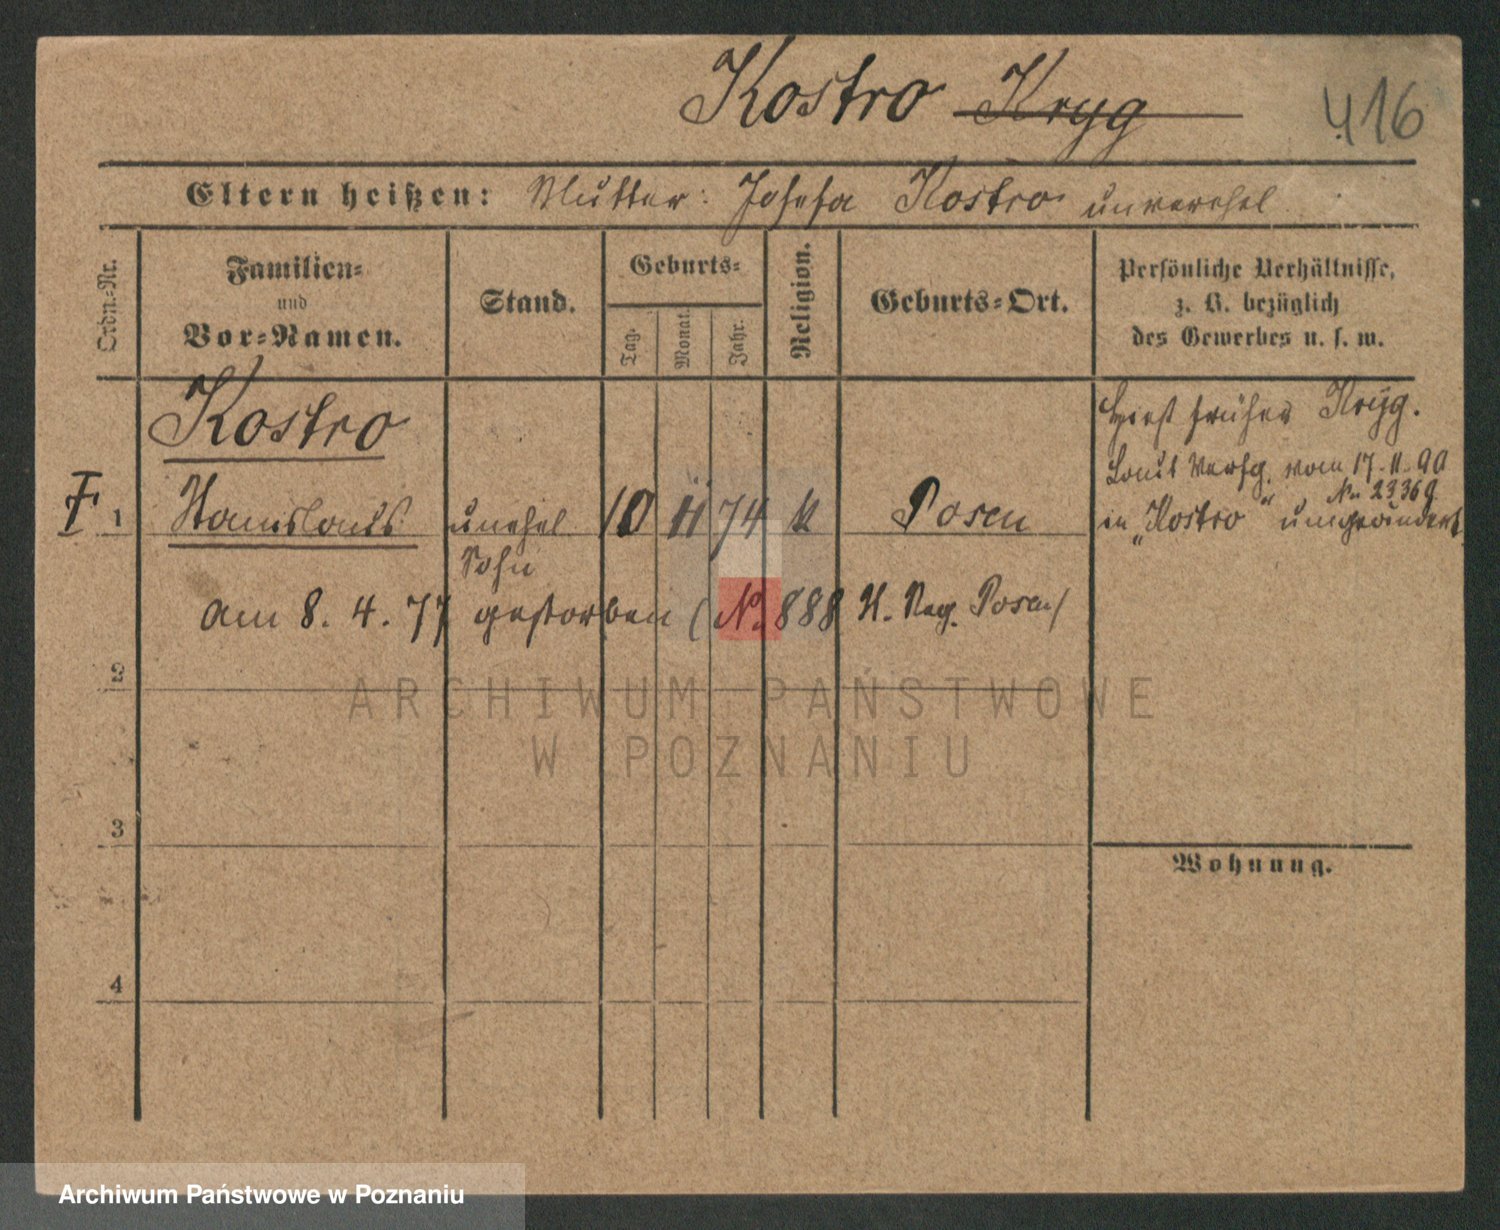 Kostro Kryg 416
Eltern heißen: Mutter: Josefa Kostro unverehel
Ordn.-Nr.
Familien-
und
Vor-Namen.
Stand.
Geburts-
Tag.
Monat.
Jahr.
Religion.
Geburts-Ort.
Persönliche Verhältnisse,
z. B. bezüglich
des Gewerbes u. s. w.
Kostro
1 Stanislaus unehel 10 11 74 k Posen
Sohn
am 8. 4. 77 gestorben (No. 888 St. Reg. Posen)
Hiess früher Kryg.
Laut Verfg. vom 17-11-90
No 23369
in „Kostro“ umgeändert
2
3
4
Wohnung.
ARCHIWUM PAŃSTWOWE
W POZNANIU
Archiwum Państwowe w Poznaniu